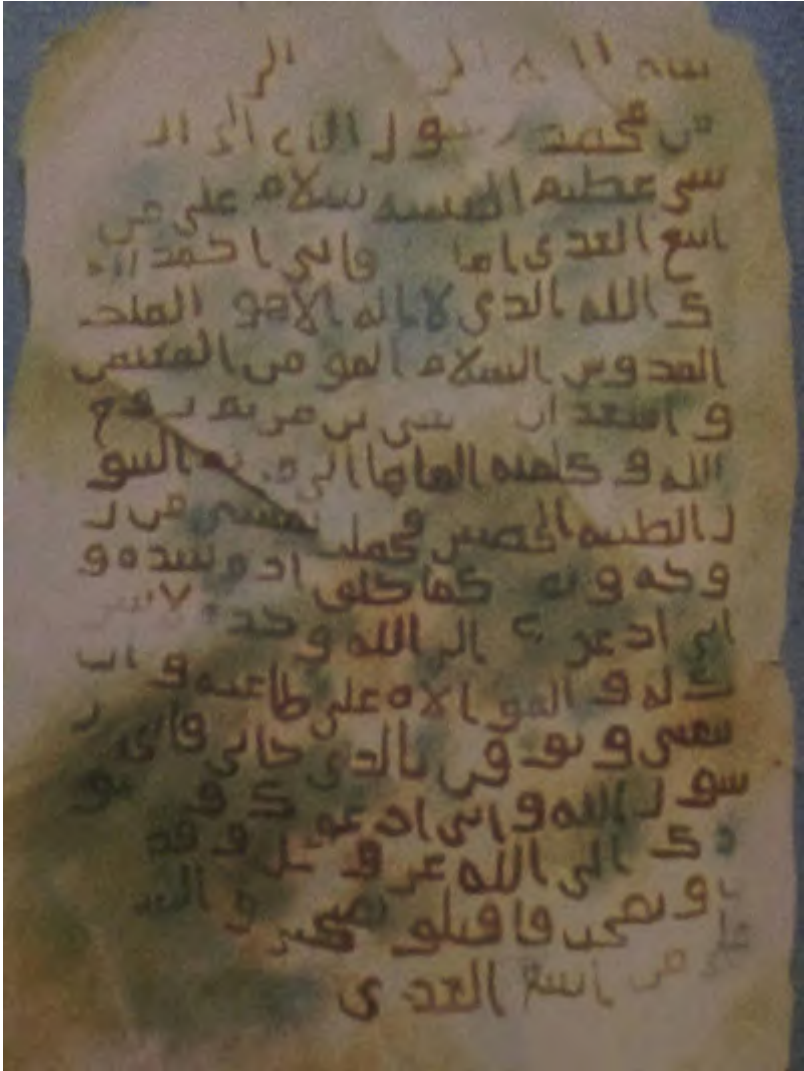 محمد رسول الله الى ال
شى عظيم الحبشه سلام على من
اتبع الهدى اما فانى احمد الي
ك الله الذى لا اله الا هو الملك
القدوس السلام المومن المهيمن
و اشهد ان عيسى بن مريم روح
الله و كلمته القاها الى مريم البتو
ل الطيبه الحصينه فحملت بعيسى من ر
وحه و نفخه كما خلق ادم بيده و
انى ادعوك الى الله وحده لا شر
يك له و الموالاه على طاعته و ان
تتبعنى و توقن بالذى جانى فانى ر
سول الله و انى ادعوك و جنو
دك الى الله عز و جل و قد
و نصحت فاقبلو نصيحتى و السلا
على من اتبع الهدى